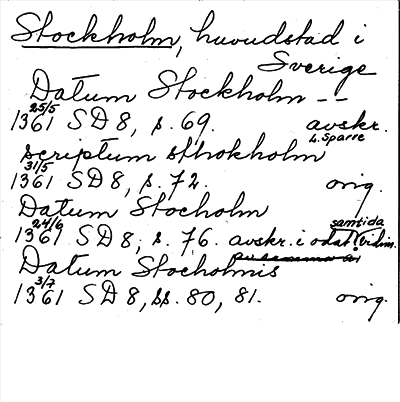 Stockholm, huvudstad i
Sverige
Datum Stockholm --
1361 25/5 SD 8, s. 69. avskr.
L. Sparre
scriptum sthokholm
1361 31/5 SD 8, s. 72. orig.
Datum Stocholm
1361 24/6 SD 8, s. 76. avskr. i odat. samtida vidim.
Datum Stocholmis
1361 3/7 SD 8, ss. 80, 81. orig.